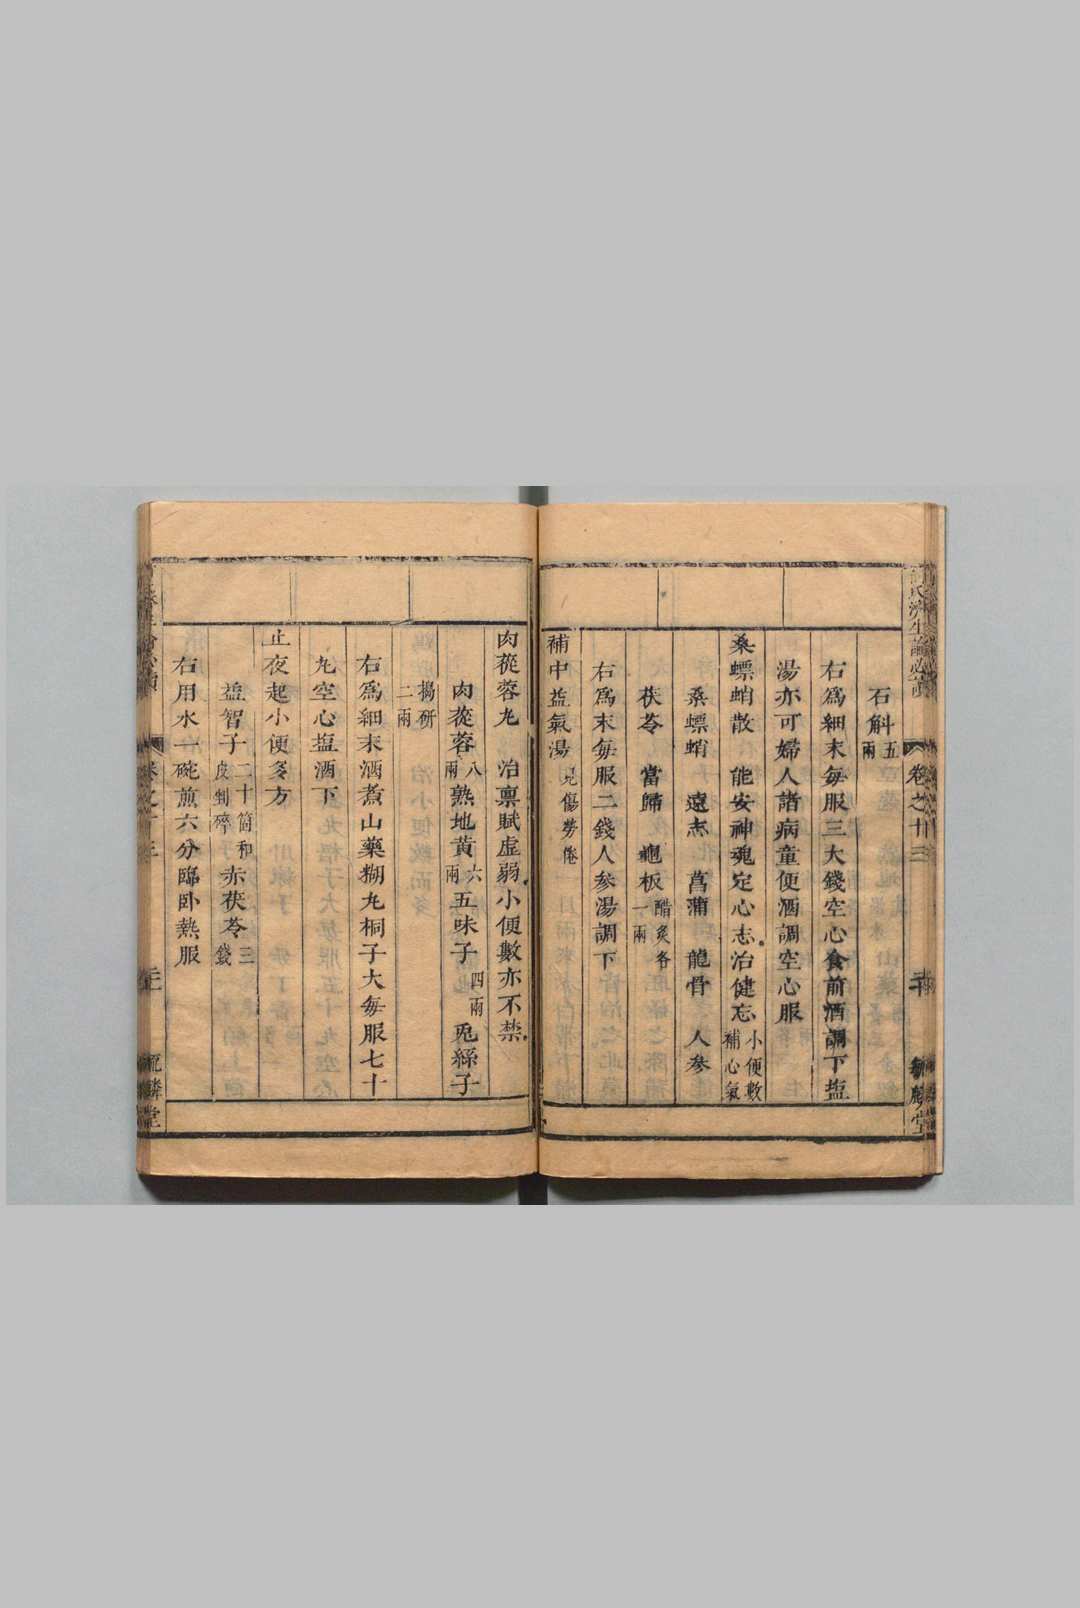 石斛五兩
右爲細末每服三大錢空心食前酒調下盐
湯亦可婦人諸病童便酒調空心服
桑螵蛸散 能安神魂定心志治健忘小便數補心氣
桑螵蛸 遠志 菖蒲 龍骨 人参
茯苓 當歸 龜板醋炙各一兩
右爲末每服二錢人参湯調下
補中益氣湯見傷勞倦
卷之十三
肉蓯蓉丸 治禀賦虚弱小便數亦不禁
肉蓯蓉八兩熟地黄六兩五味子四兩兎絲子
搗研二兩
右爲細末酒煮山藥糊丸桐子大每服七十
丸空心盐酒下
止夜起小便多方
益智子二十箇和皮剉碎赤茯苓三錢
右用水一碗煎六分臨卧熱服